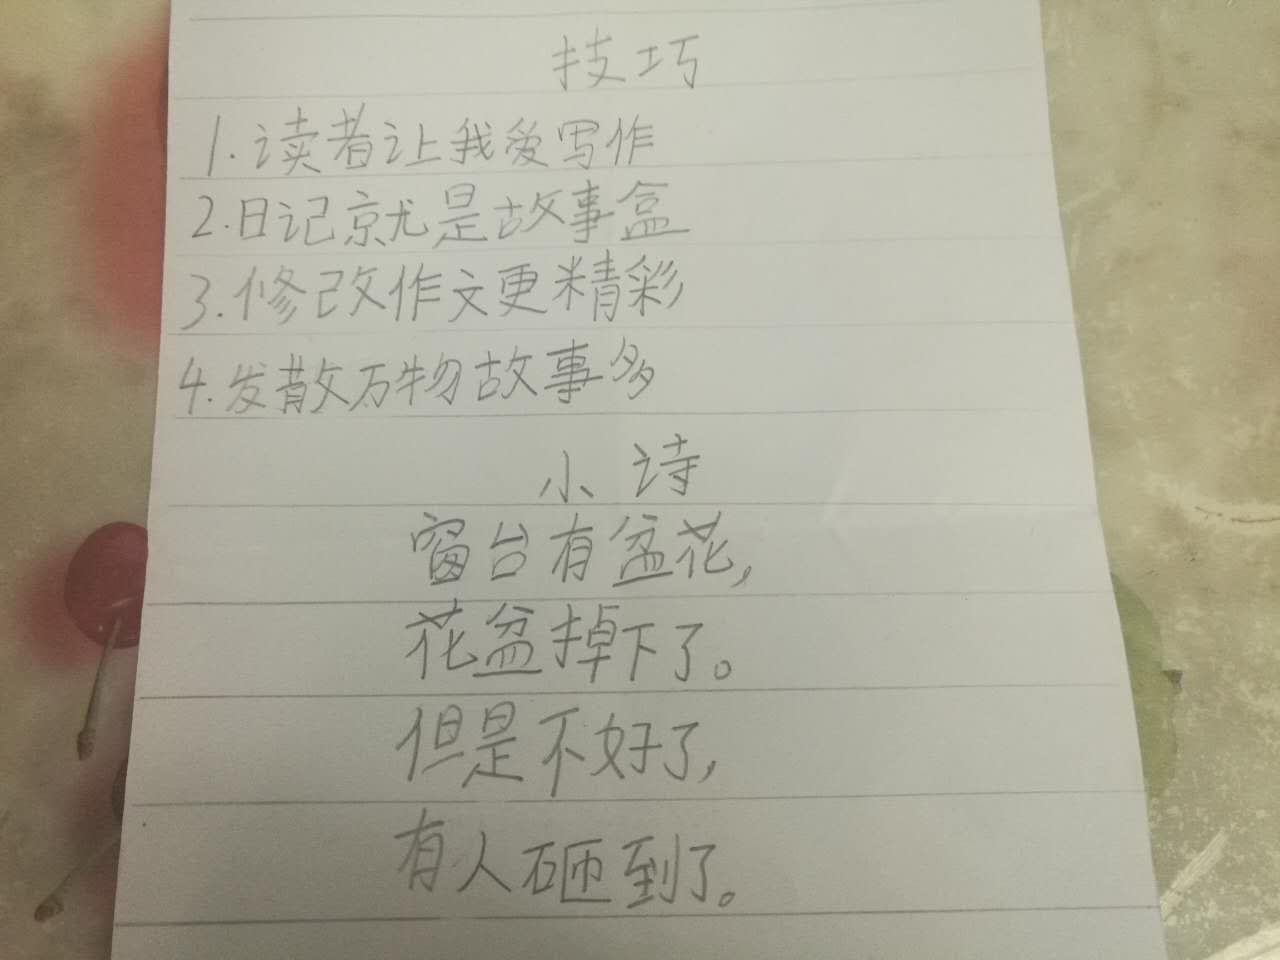 技巧
1.读者让我爱写作
2.日记就是故事盒
3.修改作文更精彩
4.发散万物故事多
小诗
窗台有盆花,
花盆掉下了。
但是不好了,
有人砸到了。